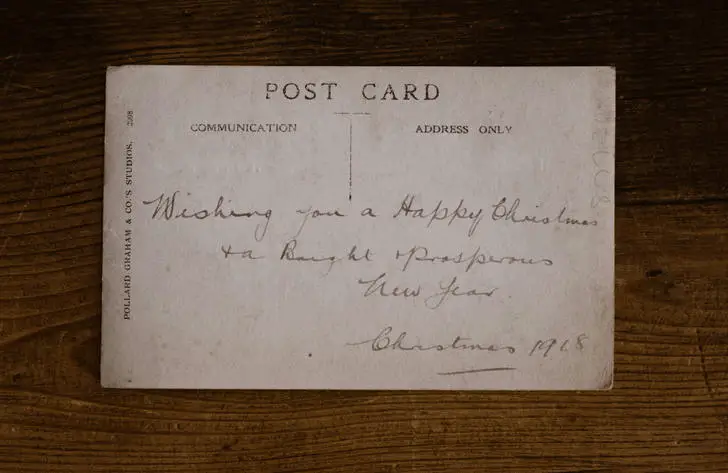 POST CARD
COMMUNICATION
ADDRESS ONLY
POLLARD GRAHAM & CO'S STUDIOS. 2508
Wishing you a Happy Christmas
& a Bright & Prosperous
New Year.
Christmas 1918